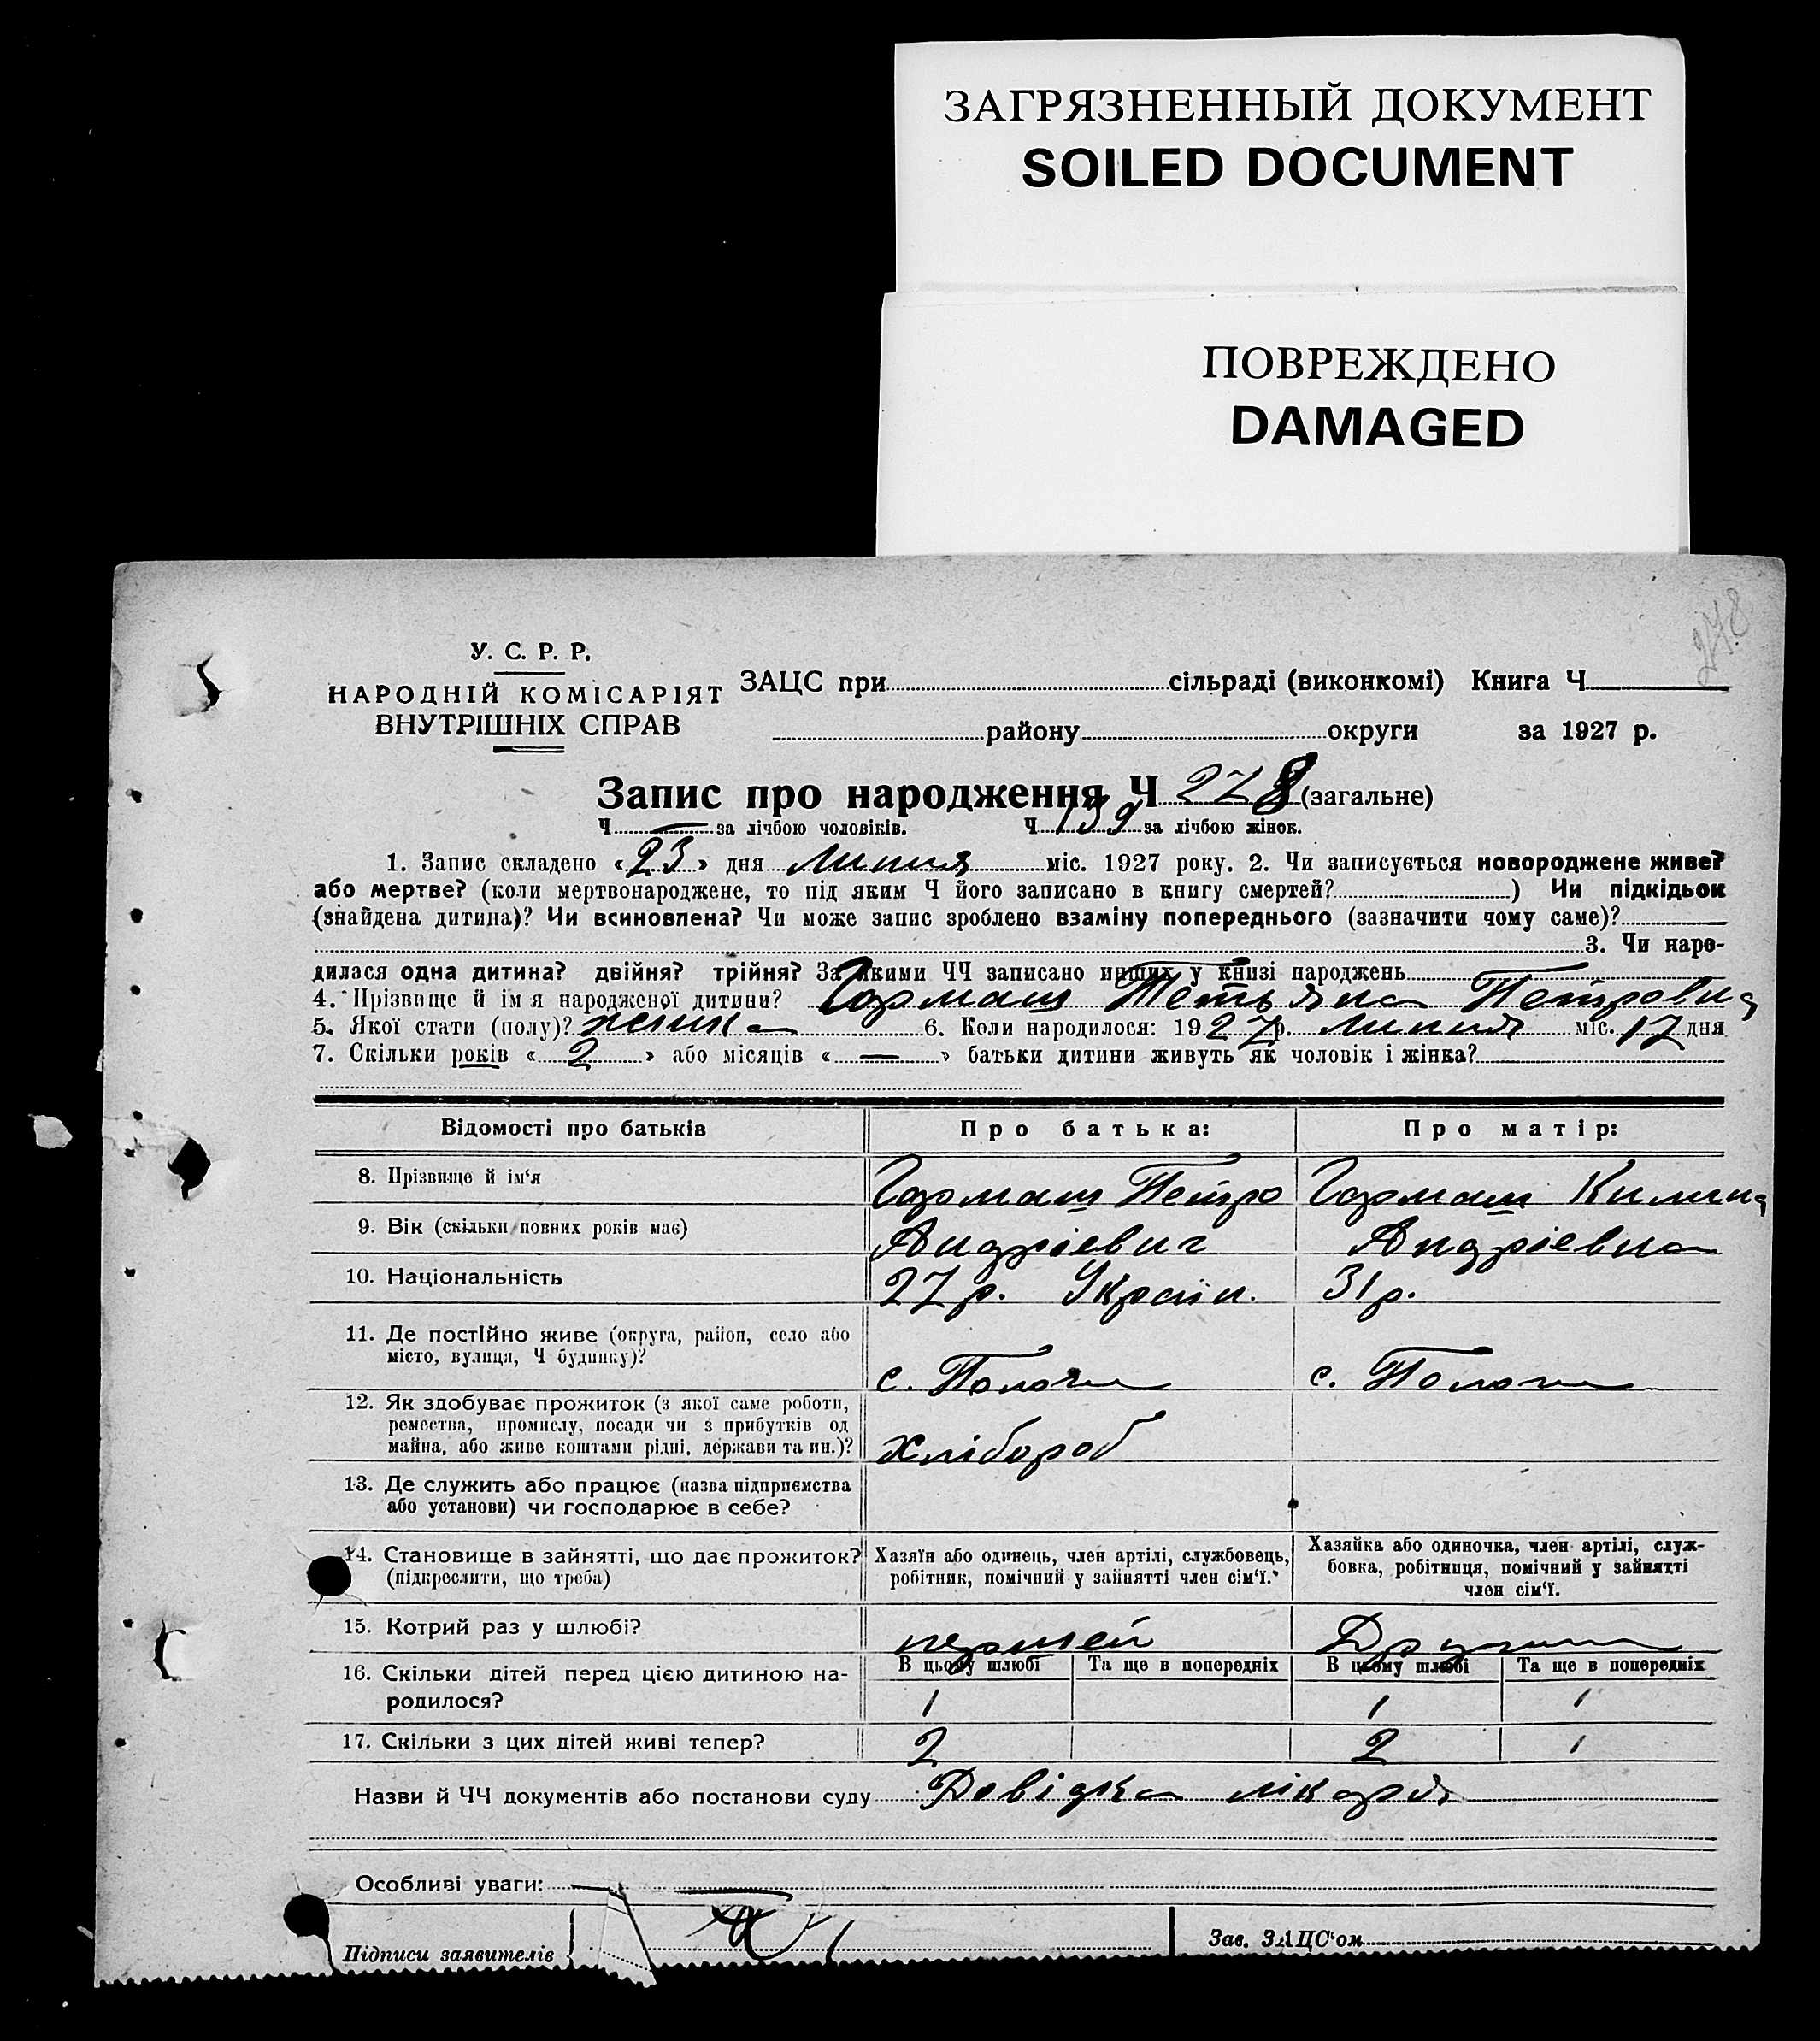 ЗАГРЯЗНЕННЫЙ ДОКУМЕНТ
SOILED DOCUMENT
ПОВРЕЖДЕНО
DAMAGED
278
У. С. Р. Р.
НАРОДНІЙ КОМІСАРІЯТ
ВНУТРІШНІХ СПРАВ
ЗАЦС при сільраді (виконкомі) Книга Ч.
району округи за 1927 р.
Запис про народження Ч 278 (загальне)
Ч. — за лічбою чоловіків. Ч. 139 за лічбою жінок.
1. Запис складено «23» дня Липня міс. 1927 року. 2. Чи записується новороджене живе?
або мертве? (коли мертвонароджене, то під яким Ч його записано в книгу смертей? ) Чи підкідьок
(знайдена дитина)? Чи всиновлена? Чи може запис зроблено взаміну попереднього (зазначити чому саме)?
3. Чи наро-
дилася одна дитина? двійня? трійня? За якими ЧЧ записано инших у книзі народжень
4. Прізвище й ім я народженої дитини? Гармаш Тетьяна Петровна
5. Якої стати (полу)? жінка 6. Коли народилося: 1927 р. липня міс. 17 дня
7. Скільки років « 2 » або місяців « — » батьки дитини живуть як чоловік і жінка?
Відомості про батьків Про батька: Про матір:
8. Прізвище й ім'я Гармаш Петро Гармаш Килина
9. Вік (скільки повних років має) Андріевич Андріевна
10. Національність 27 р. Україн. 31 р.
11. Де постійно живе (округа, район, село або
місто, вулиця, Ч будинку)? с. Пологи с. Пологи
12. Як здобуває прожиток (з якої саме роботи,
ремества, промислу, посади чи з прибутків од
майна, або живе коштами рідні, держави та ин.)? хлібороб
13. Де служить або працює (назва підприємства
або установи) чи господарює в себе?
14. Становище в зайнятті, що дає прожиток?
(підкреслити, що треба)
Хазяїн або одинець, член артілі, службовець,
робітник, помічний у зайнятті член сім'ї.
Хазяйка або одиночка, член артілі, служ-
бовка, робітниця, помічний у зайнятті
член сім'ї.
15. Котрий раз у шлюбі? першей
В цьому шлюбі Та ще в попередніх В цьому шлюбі Та ще в попередніх
16. Скільки дітей перед цією дитиною на-
родилося? 1 1 1
17. Скільки з цих дітей живі тепер? 2 2 1
Назви й ЧЧ документів або постанови суду Довідка лікаря
Особливі уваги:
Підписи заявителів
Зав. ЗАЦС'ом